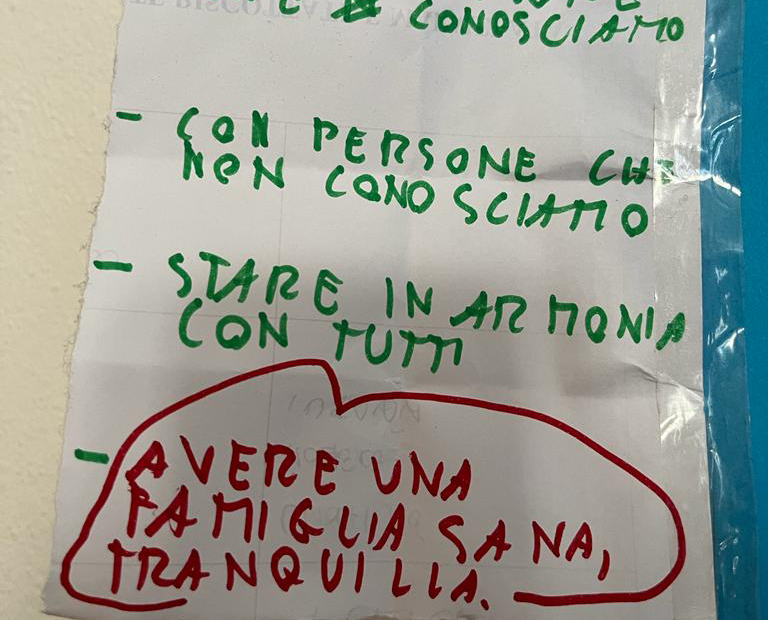 CONOSCIAMO
- CON PERSONE CHE
NON CONOSCIAMO
- STARE IN ARMONIA
CON TUTTI
- AVERE UNA
FAMIGLIA SANA,
TRANQUILLA.